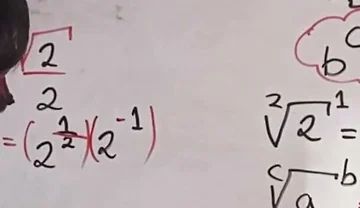 √2
2
= (2^(1/2))(2^-1)
c
b
²√2¹ =
ᶜ√a b